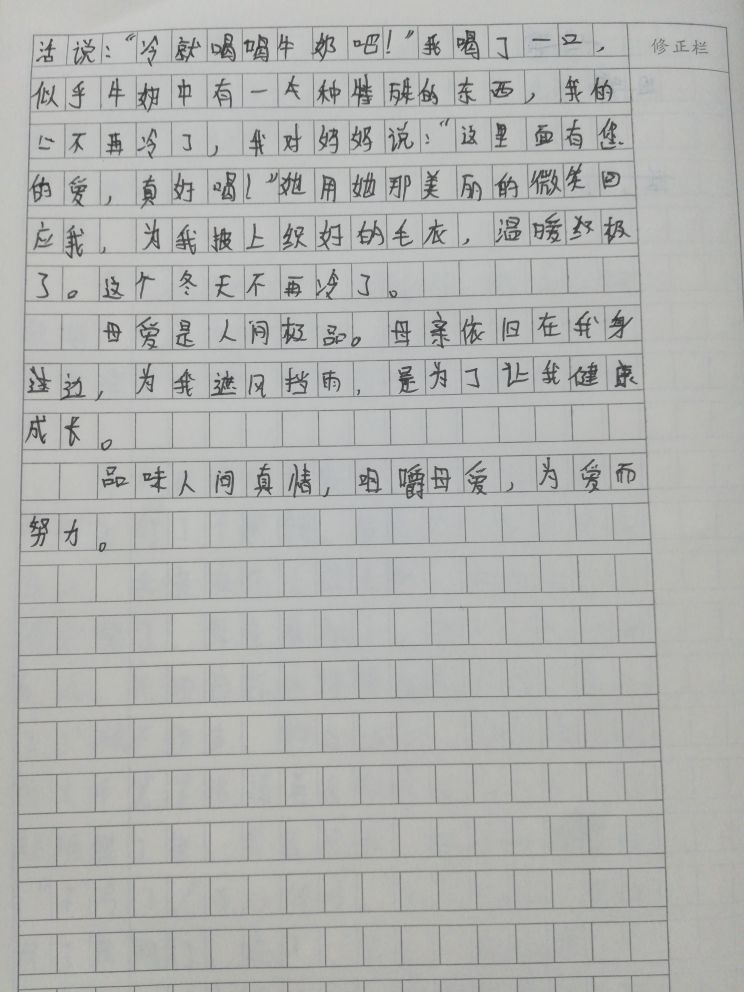 活说：“冷就喝喝牛奶吧！”我喝了一口，
修正栏
似乎牛奶中有一种特殊的东西，我的
心不再冷了，我对妈妈说：“这里面有您
的爱，真好喝！”她用她那美丽的微笑回
应我，为我披上织好的毛衣，温暖极
了。这个冬天不再冷了。
母爱是人间极品。母亲依旧在我身
边，为我遮风挡雨，是为了让我健康
成长。
品味人间真情，咀嚼母爱，为爱而
努力。